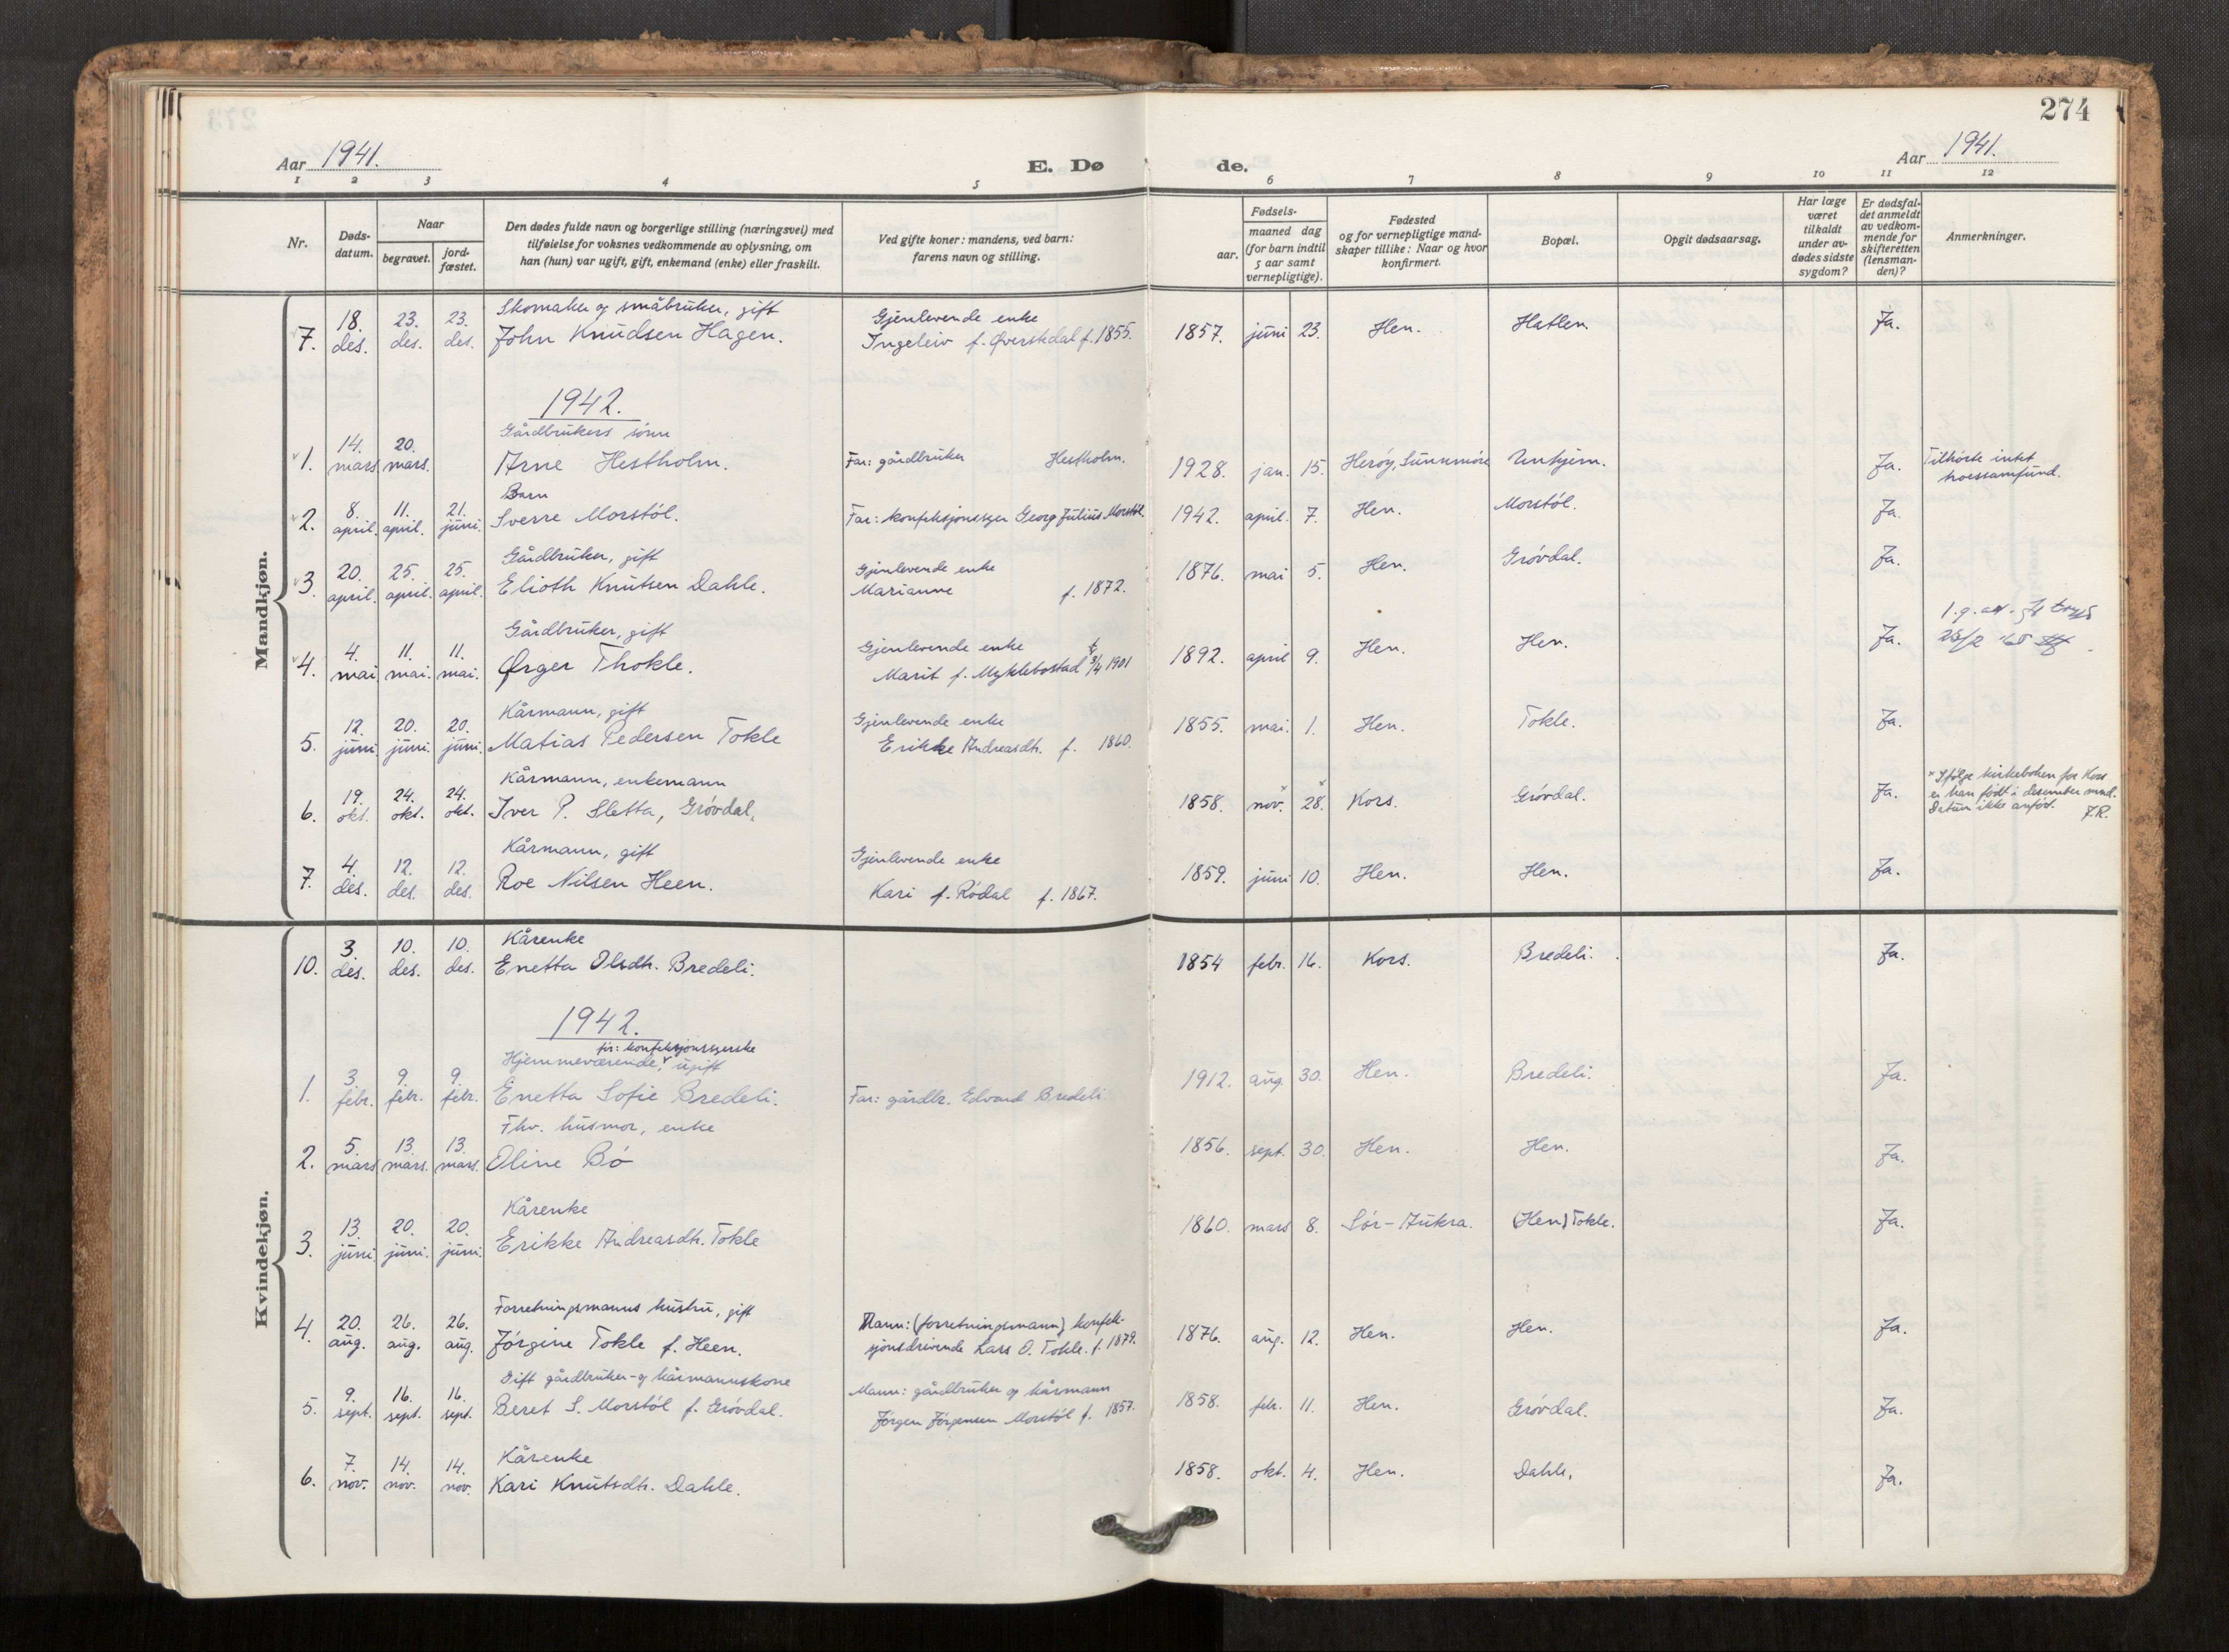 274
Aar 1941.
E. Døde.
Aar 1941.
1 2 3 4 5 6 7 8 9 10 11 12
Nr.
Døds-
datum.
Naar
begravet.
jord-
fæstet.
Den dødes fulde navn og borgerlige stilling (næringsvei) med
tilføielse for voksnes vedkommende av oplysning, om
han (hun) var ugift, gift, enkemand (enke) eller fraskilt.
Ved gifte koner: mandens, ved barn:
farens navn og stilling.
Fødsels-
aar.
maaned dag
(for barn indtil
5 aar samt
vernepligtige).
Fødested
og for vernepligtige mand-
skaper tillike: Naar og hvor
konfirmert.
Bopæl.
Opgit dødsaarsag.
Har læge
været
tilkaldt
under av-
dødes sidste
sygdom?
Er dødsfal-
det anmeldt
av vedkom-
mende for
skifteretten
(lensman-
den)?
Anmerkninger.
Mandkjøn.
Skomaker og småbruker, gift Gjenlevende enke
7. 18. des. 23. des. 23. des. John Knudsen Hagen. Ingeleiv f. Øverstedal f. 1855. 1857. juni 23. Hen. Hatlen. Ja.
1942.
Gårdbrukers sønn
1. 14. mars 20. mars. Arne Hestholm. Far: gårdbruker Hestholm. 1928. jan. 15. Herøy, Sunnmøre Unhjem. Ja. Tilhørte intet
troessamfund.
Barn
2. 8. april. 11. april. 21. juni. Sverre Morstøl. Far: konfeksjonssyer Georg Julius Morstøl. 1942. april. 7. Hen. Morstøl. Ja.
Gårdbruker, gift Gjenlevende enke
3. 20. april. 25. april. 25. april. Elioth Knutsen Dahle. Marianne f. 1872. 1876. mai 5. Hen. Grøvdal. Ja.
Gårdbruker, gift Gjenlevende enke
4. 4. mai 11. mai. 11. mai. Ørger Thokle. Marit f. Myklebostad 3/4 1901 1892. april 9. Hen. Hen. Ja.
Kårmann, gift Gjenlevende enke
5. 12. juni. 20. juni. 20. juni. Matias Pedersen Tokle Erikke Andreasdtr. f. 1860. 1855. mai. 1. Hen. Tokle. Ja.
Kårmann, enkemann
6. 19. okt. 24. okt. 24. okt. Iver P. Sletta, Grøvdal. 1858. nov. 28. Kors. Grøvdal. Ja. Ifølge kirkeboken for Kors
er han født i desember mnd.
Datum ikke anført. J.R.
Kårmann, gift Gjenlevende enke
7. 4. des. 12. des. 12. des. Roe Nilsen Heen. Kari f. Rødal f. 1867. 1859. juni 10. Hen. Hen. Ja.
Kvindekjøn.
Kårenke
10. 3. des. 10. des. 10. des. Enetta Olsdtr. Bredeli. 1854 febr. 16. Kors. Bredeli. Ja.
1942.
før: konfeksjonssyerske
Hjemmeværende, ugift
1. 3. febr. 9. febr. 9. febr. Enetta Sofie Bredeli. Far: gårdbr. Edvard Bredeli. 1912. aug. 30. Hen. Bredeli. Ja.
Fhv. husmor, enke
2. 5. mars 13. mars. 13. mars. Oline Bø 1856. sept. 30. Hen. Hen. Ja.
Kårenke
3. 13. juni 20. juni. 20. juni. Erikke Andreasdtr. Tokle 1860. mars 8. Sør-Aukra. (Hen) Tokle. Ja.
Forretningsmanns hustru, gift Mann: (forretningsmann) konfek-
4. 20. aug. 26. aug. 26. aug. Jørgine Tokle f. Heen. sjonsdrivende Lars O. Tokle. f. 1879. 1876. aug. 12. Hen. Hen. Ja.
Gift gårdbruker- og kårmannskone Mann: gårdbruker og kårmann
5. 9. sept. 16. sept. 16. sept. Beret S. Morstøl f. Grøvdal. Jørgen Jørgensen Morstøl f. 1857. 1858. febr. 11. Hen. Grøvdal. Ja.
Kårenke
6. 7. nov. 14. nov. 14. nov. Kari Knutsdtr. Dahle. 1858. okt. 4. Hen. Dahle. Ja.